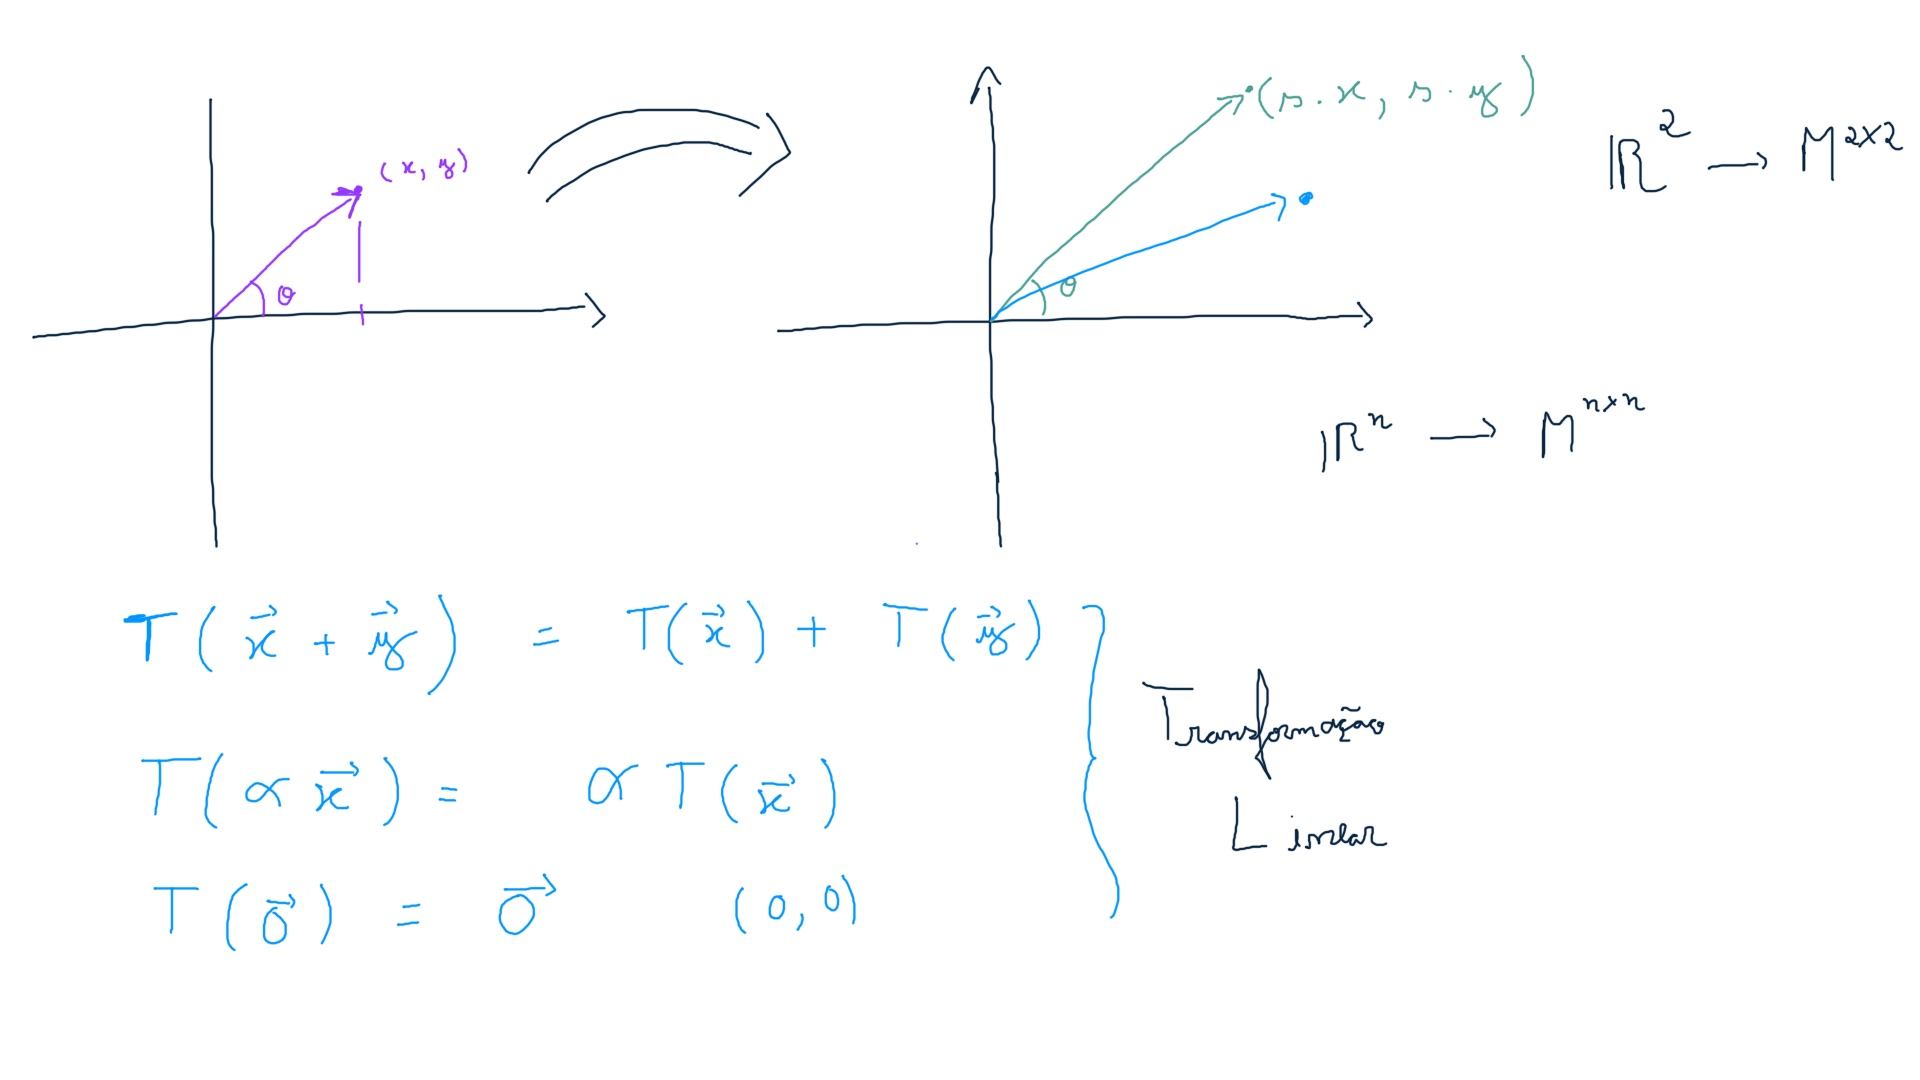 (x, y)
θ
(s . x, s . y)
θ
ℝ² → M²ˣ²
ℝⁿ → Mⁿˣⁿ
T(x⃗ + y⃗) = T(x⃗) + T(y⃗)
T(α x⃗) = α T(x⃗)
T(0⃗) = 0⃗ (0, 0)
Transformação
Linear